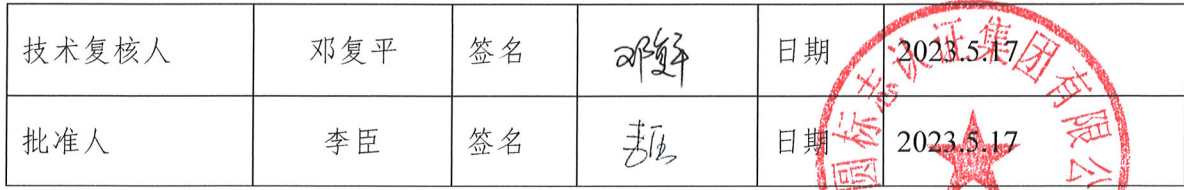 技术复核人 邓复平 签名 邓复平 日期 2023.5.17
批准人 李臣 签名 李臣 日期 2023.5.17
圆标志认证集团有限公